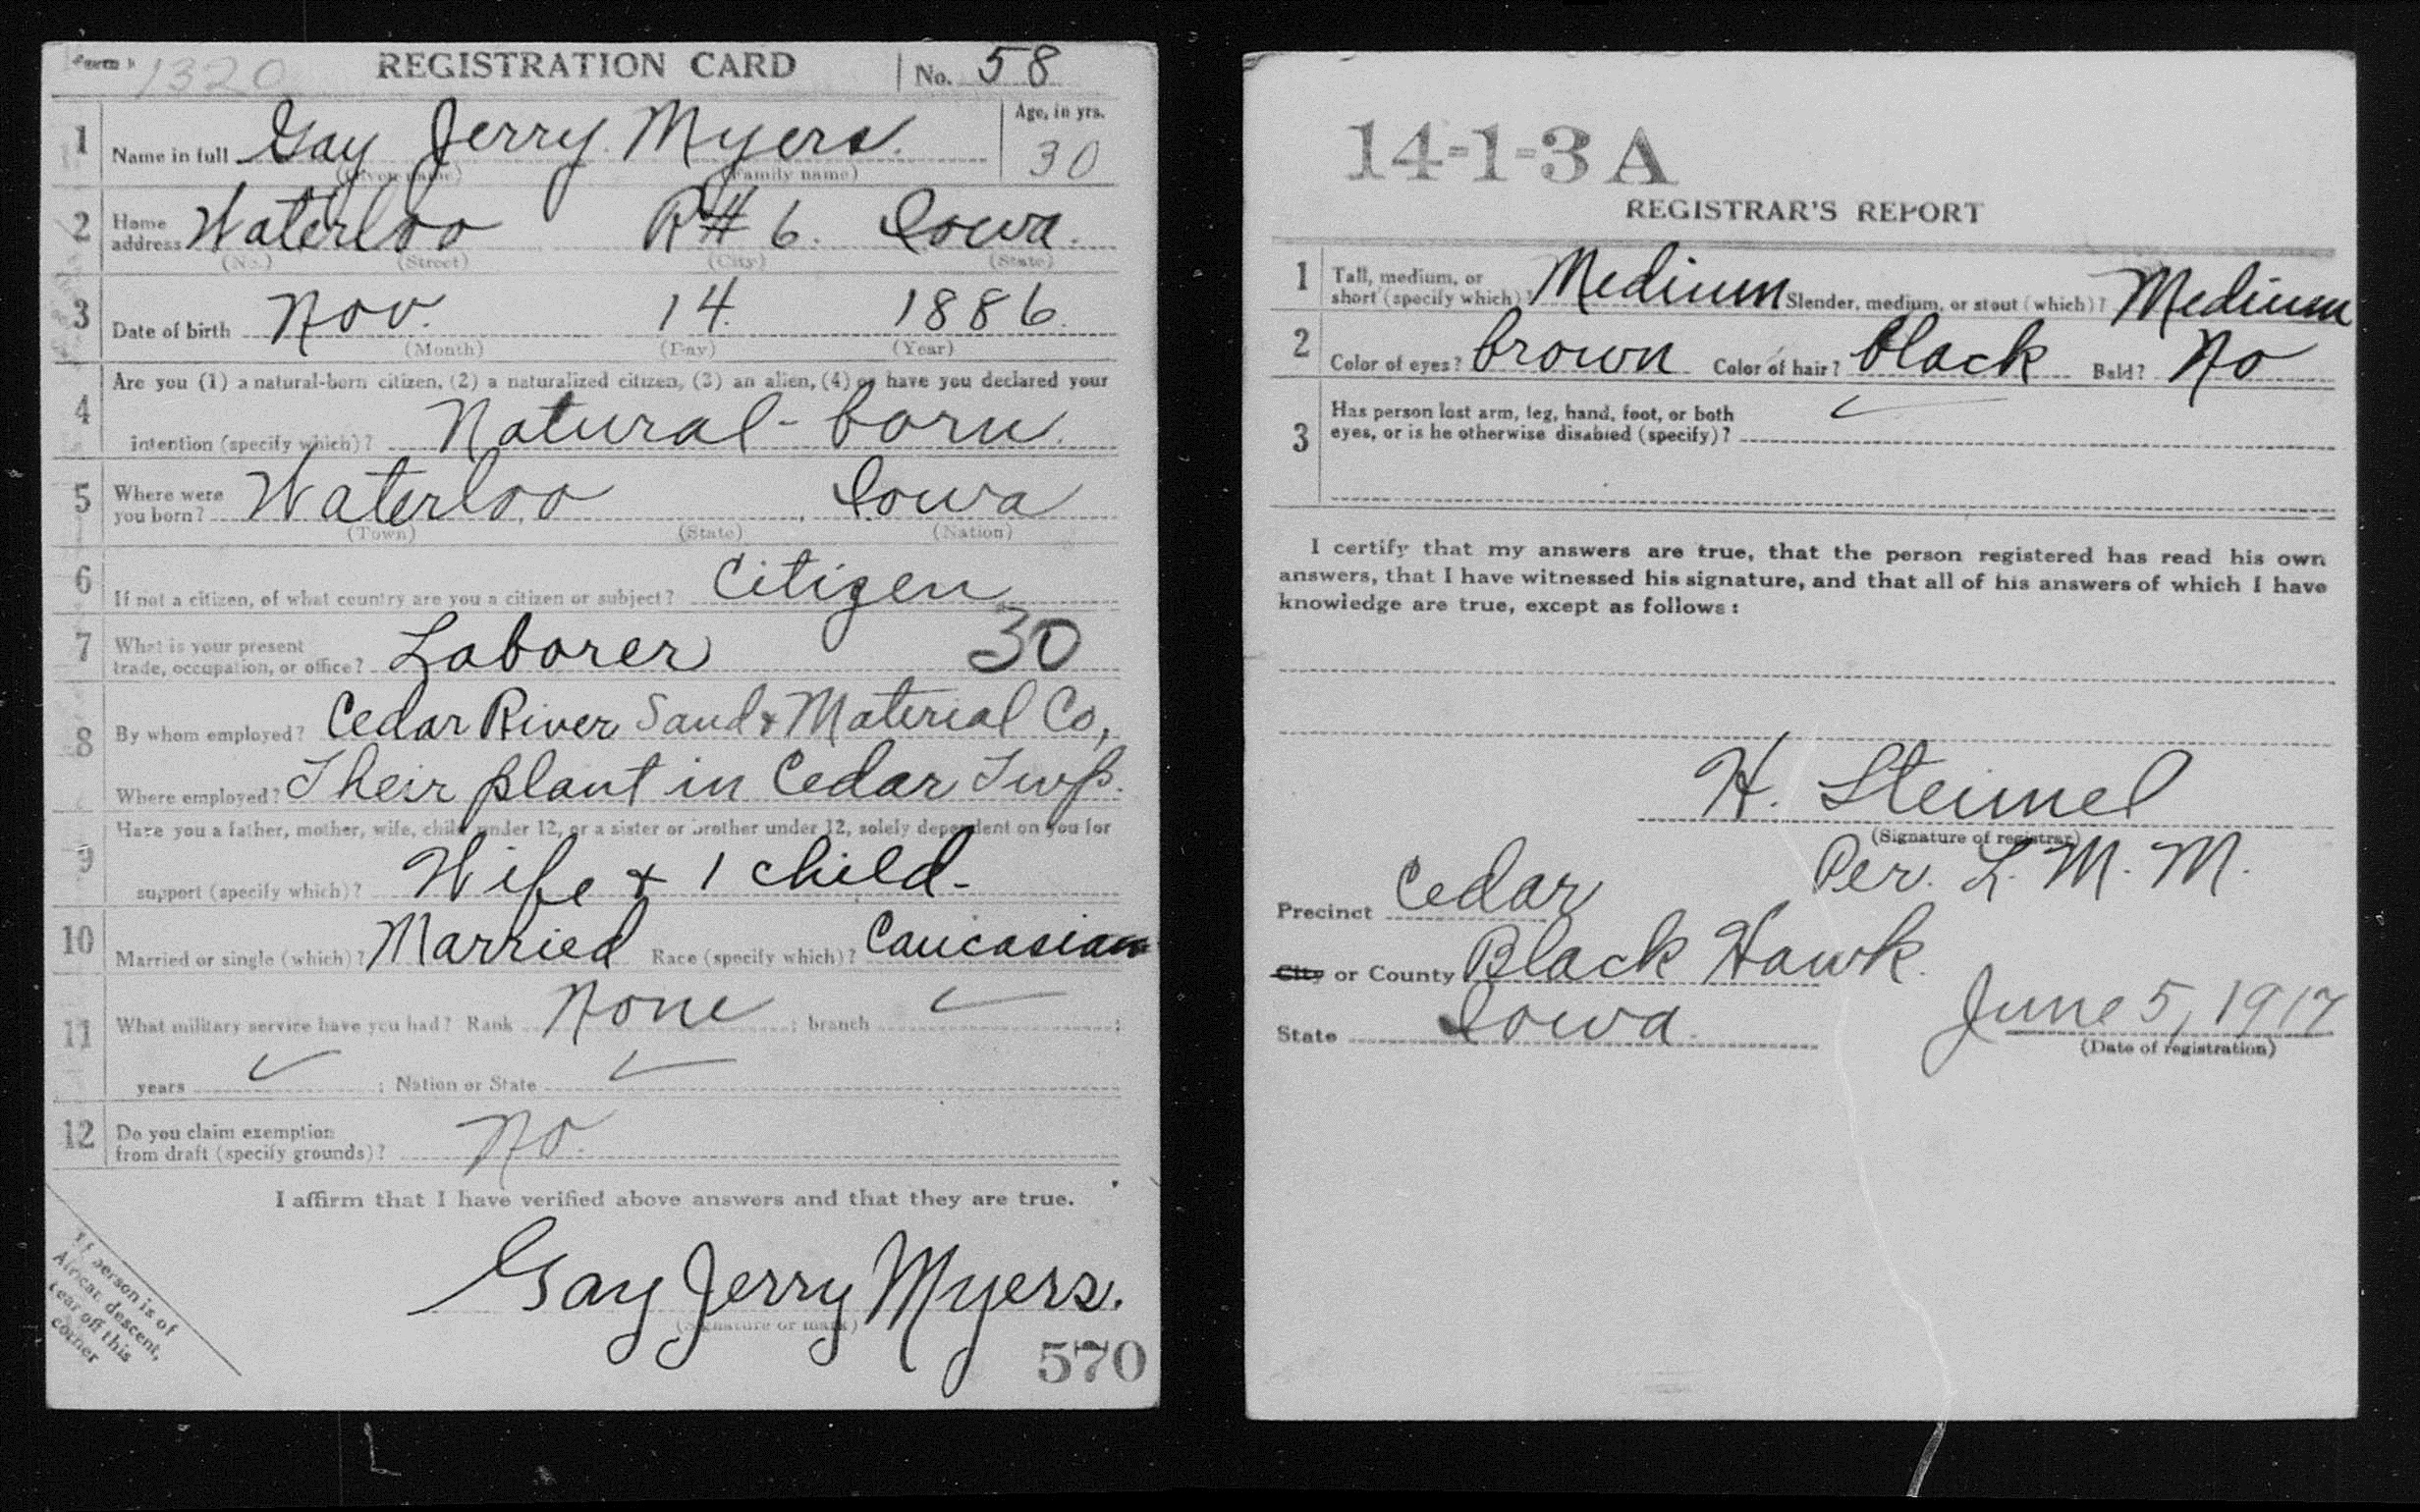 Form 1 1320 REGISTRATION CARD No. 58
1 Name in full Gay Jerry Myers. Age, in yrs. 30
(Given name) (Family name)
2 Home address Waterloo R#6. Iowa.
(No.) (Street) (City) (State)
3 Date of birth Nov. 14. 1886.
(Month) (Day) (Year)
4 Are you (1) a natural-born citizen, (2) a naturalized citizen, (3) an alien, (4) or have you declared your
intention (specify which)? Natural-born.
5 Where were you born? Waterloo, Iowa
(Town) (State) (Nation)
6 If not a citizen, of what country are you a citizen or subject? Citizen
7 What is your present trade, occupation, or office? Laborer 30
8 By whom employed? Cedar River Sand & Material Co,
Where employed? Their plant in Cedar Twp.
9 Have you a father, mother, wife, child under 12, or a sister or brother under 12, solely dependent on you for
support (specify which)? Wife & 1 child-
10 Married or single (which)? Married Race (specify which)? Caucasian
11 What military service have you had? Rank None ; branch ;
years ; Nation or State
12 Do you claim exemption from draft (specify grounds)? No.
I affirm that I have verified above answers and that they are true.
Gay Jerry Myers.
(Signature or mark)
570
If person is of
African descent,
tear off this
corner
14-1-3 A
REGISTRAR'S REPORT
1 Tall, medium, or short (specify which)? Medium Slender, medium, or stout (which)? Medium
2 Color of eyes? brown Color of hair? black Bald? No
3 Has person lost arm, leg, hand, foot, or both
eyes, or is he otherwise disabled (specify)?
I certify that my answers are true, that the person registered has read his own
answers, that I have witnessed his signature, and that all of his answers of which I have
knowledge are true, except as follows:
H. Steimel
(Signature of registrar)
Per. L. M. M.
Precinct Cedar
City or County Black Hawk.
State Iowa. June 5, 1917
(Date of registration)